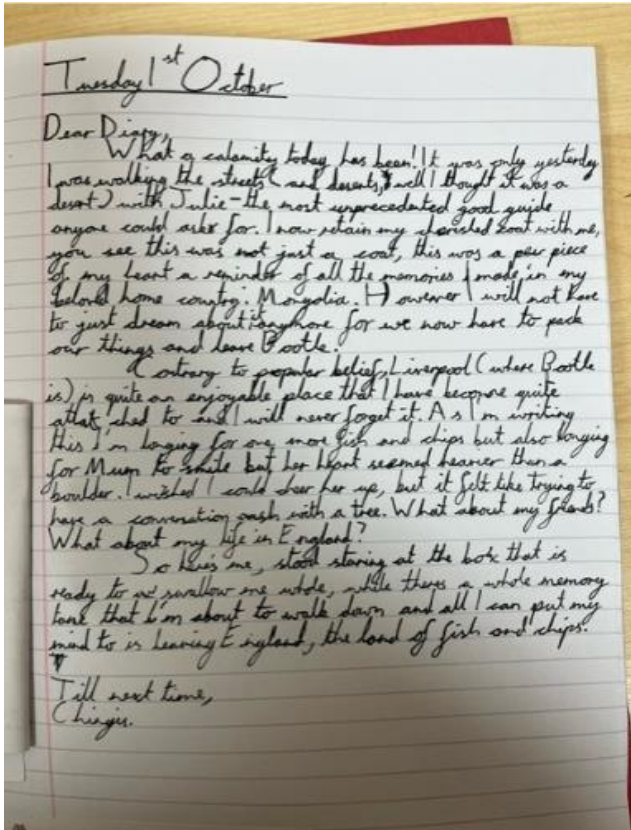 Tuesday 1st October
Dear Diary,
What a calamity today has been! It was only yesterday
I was walking the streets (and deserts, well I thought it was a
desert) with Julie - the most unprecedented good guide
anyone could ask for. I now retain my cherished coat with me,
you see this was not just a coat, this was a piece
of my heart a reminder of all the memories I made in my
beloved home country: Mongolia. However I will not have
to just dream about it anymore for we now have to pack
our things and leave Bootle.
Contrary to popular belief, Liverpool (where Bootle
is) is quite an enjoyable place that I have become quite
attatched to and I will never forget it. As I'm writing
this I'm longing for one more fish and chips but also longing
for Mum to smile but her heart seemed heavier than a
boulder. I wished I could cheer her up, but it felt like trying to
have a conversation with a tree. What about my friends?
What about my life in England?
So here's me, stood staring at the box that is
ready to swallow me whole, while theres a whole memory
lane that I'm about to walk down and all I can put my
mind to is leaving England, the land of fish and chips.
Till next time,
Chingis.